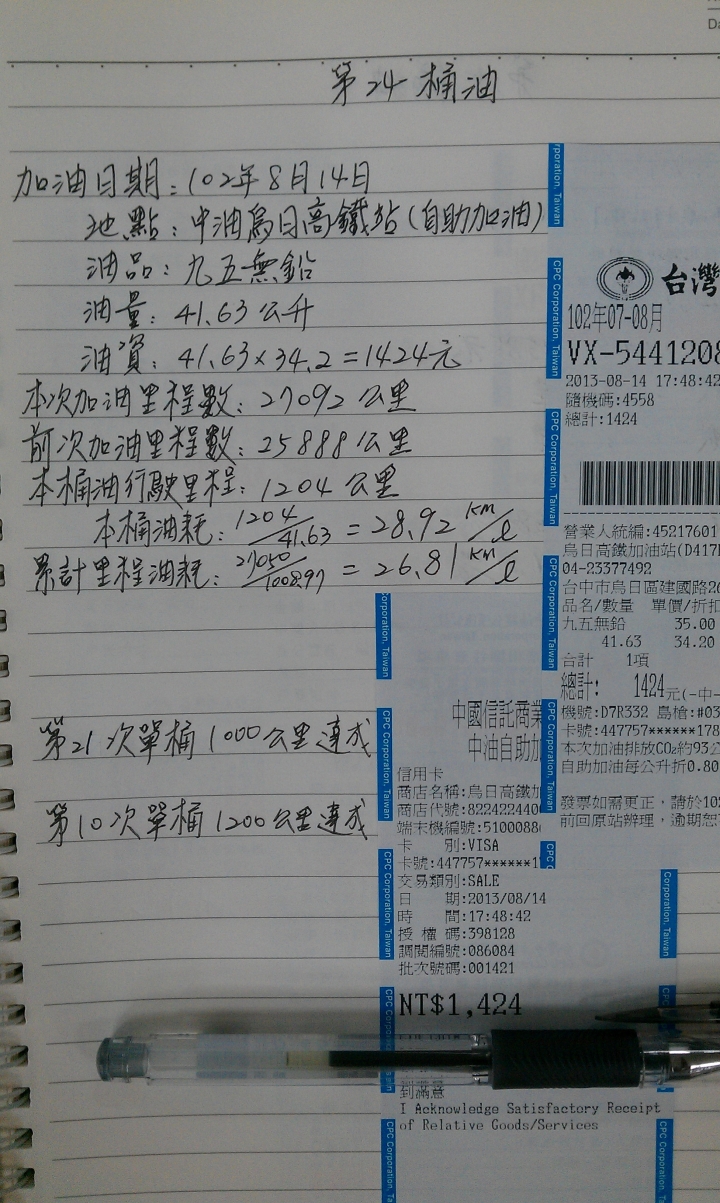 第24桶油
加油日期:102年8月14日
地點:中油烏日高鐵站(自助加油)
油品:九五無鉛
油量:41.63公升
油資:41.63×34.2=1424元
本次加油里程數:27092公里
前次加油里程數:25888公里
本桶油行駛里程:1204公里
本桶油耗:1204/41.63=28.92 km/l
累計里程油耗:27050/1008.97=26.81 km/l
第21次單桶1000公里達成
第10次單桶1200公里達成
台灣
102年07-08月
VX-5441208
2013-08-14 17:48:42
隨機碼:4558
總計:1424
營業人統編:45217601
烏日高鐵加油站(D417
04-23377492
台中市烏日區建國路2
品名/數量 單價/折扣
九五無鉛 35.00
41.63 34.20
合計 1項
總計: 1424元(-中-
機號:D7R332 島槍:#03
卡號:447757******178
本次加油排放CO₂約93公
自助加油每公升折0.80
發票如需更正,請於10
前回原站辦理,逾期恕
中國信託商業
中油自助加
信用卡
商店名稱:烏日高鐵加
商店代號:822422440
端末機編號:5100088
卡 別:VISA
卡號:447757******1
交易類別:SALE
日 期:2013/08/14
時 間:17:48:42
授 權 碼:398128
調閱編號:086084
批次號碼:001421
NT$1,424
到滿意
I Acknowledge Satisfactory Receipt
of Relative Goods/Services
CPC Corporation, Taiwan
CPC Corporation, Taiwan
CPC Corporation, Taiwan
CPC Corporation, Taiwan
CPC Corporation, Taiwan